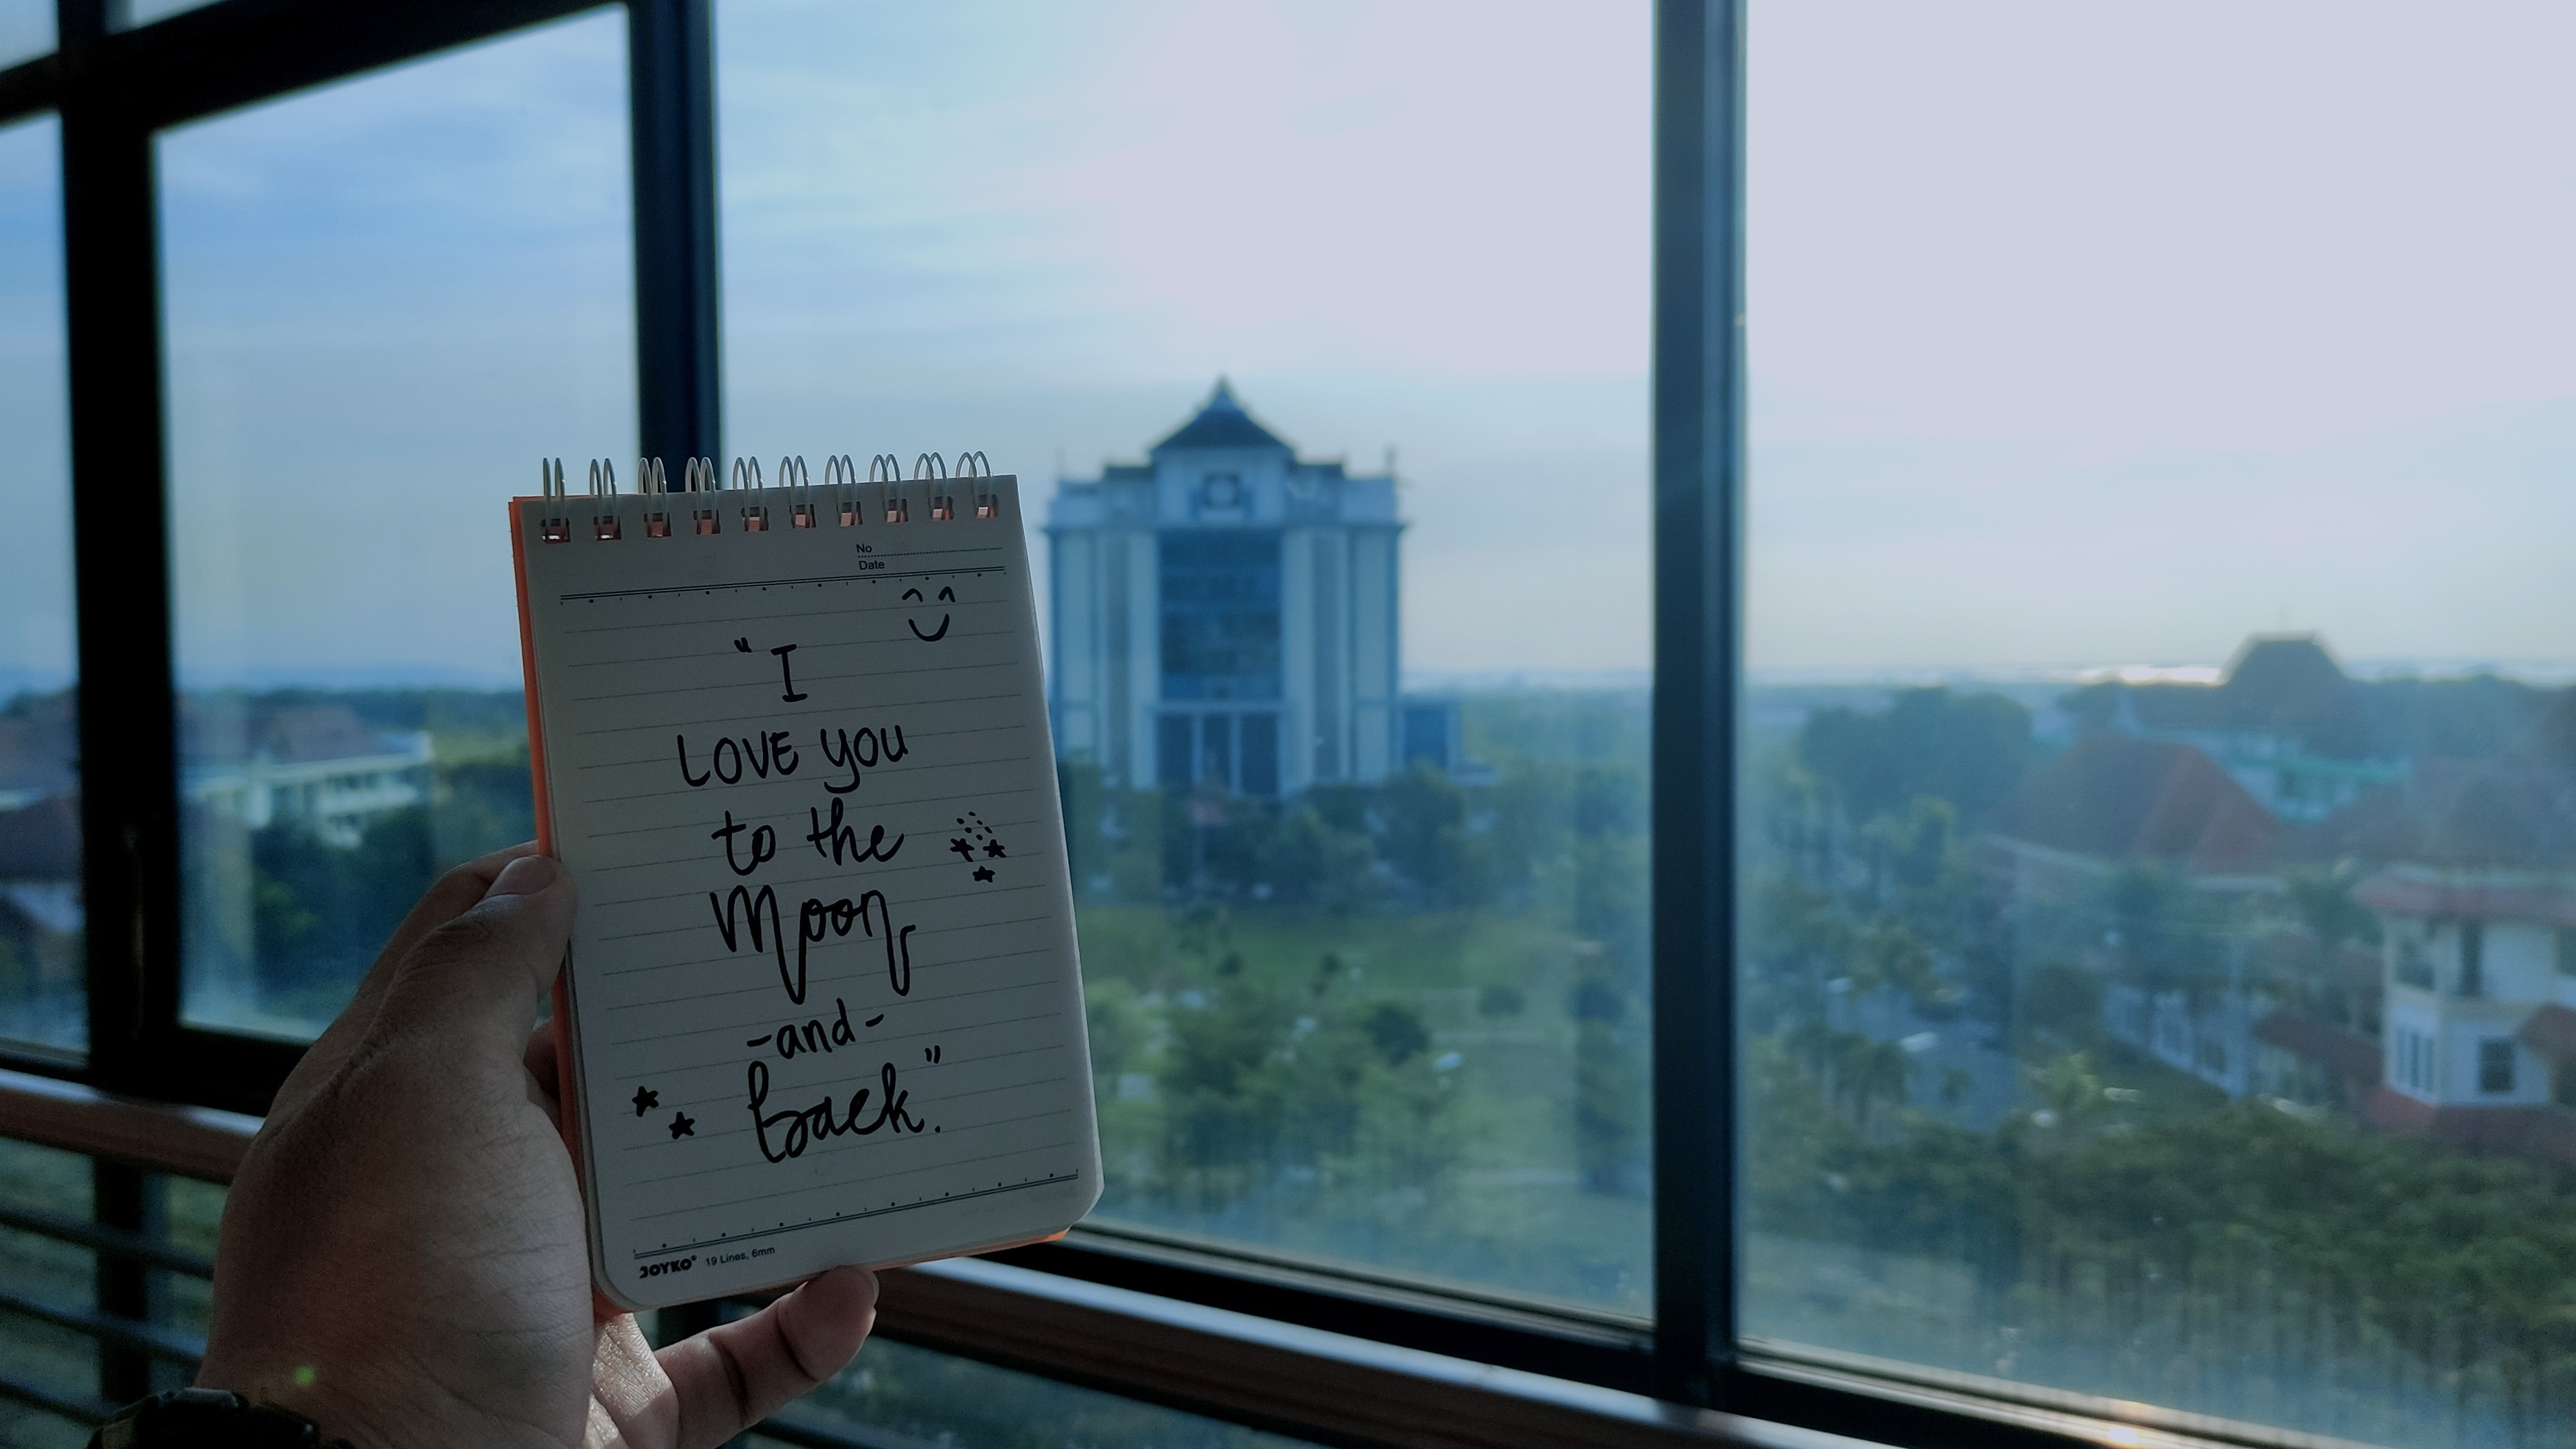 No
Date
"I
LOVE you
to the
Moon
-and-
back."
JOYKO® 19 Lines, 6mm